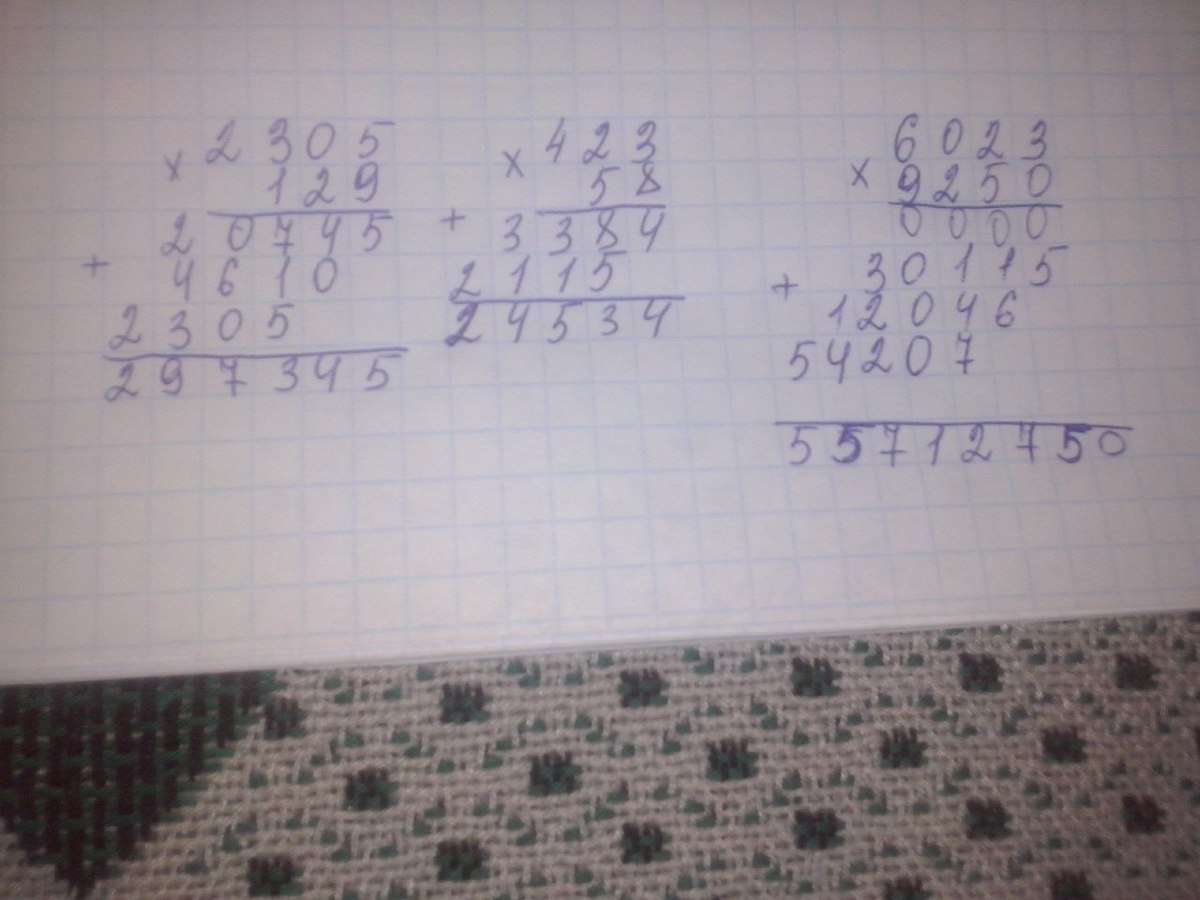 × 2305
129
20745
+ 4610
2305
297345
× 423
58
+ 3384
2115
24534
6023
× 9250
0000
+ 30115
12046
54207
55712750